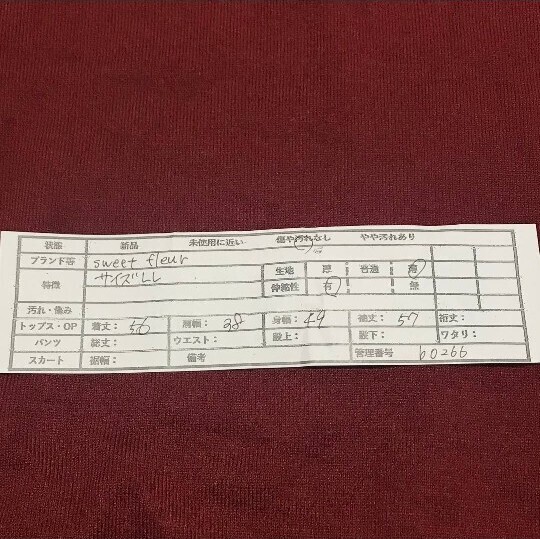 状態 新品 未使用に近い 傷や汚れなし やや汚れあり
ブランド等 sweet fleur
特徴 サイズLL 生地 厚 普通 薄
伸縮性 有 無
汚れ・傷み
トップス・OP 着丈：56 肩幅：38 身幅：49 袖丈：57 裄丈：
パンツ 総丈： ウエスト： 股上： 股下： ワタリ：
スカート 裾幅： 備考 管理番号 b0266